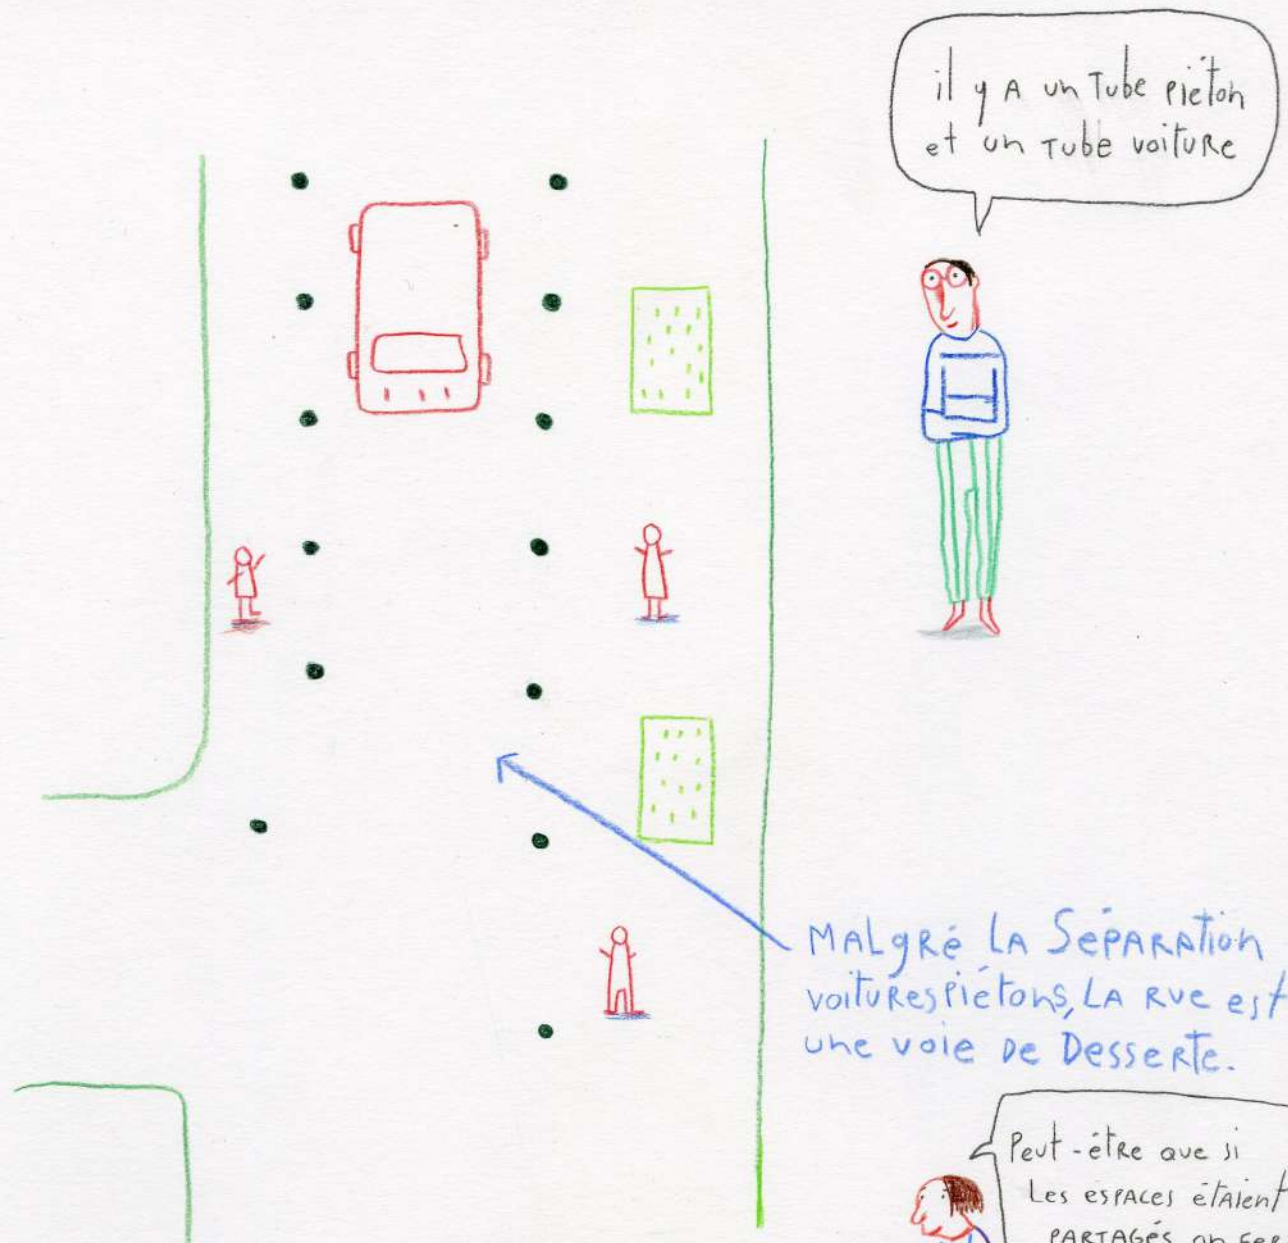 il y A un Tube piéton
et un Tube voiture
MALgré LA SéPARATion
voitures piétons, LA RUe est
une voie De DesseRTe.
Peut-étRe que si
Les espAces étAient
PARTAGés on